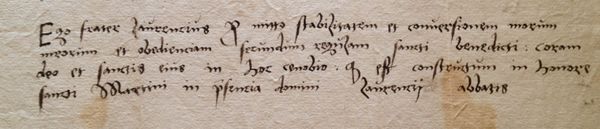 Ego frater Laurencius ꝓmitto stabilitatem et conversionem morum
meorum et obedienciam secundum regulam sancti benedicti : coram
deo et sanctis eius in hoc cenobio : qd est constructum in honore
sancti Martini in pñsencia domini Laurencij abbatis